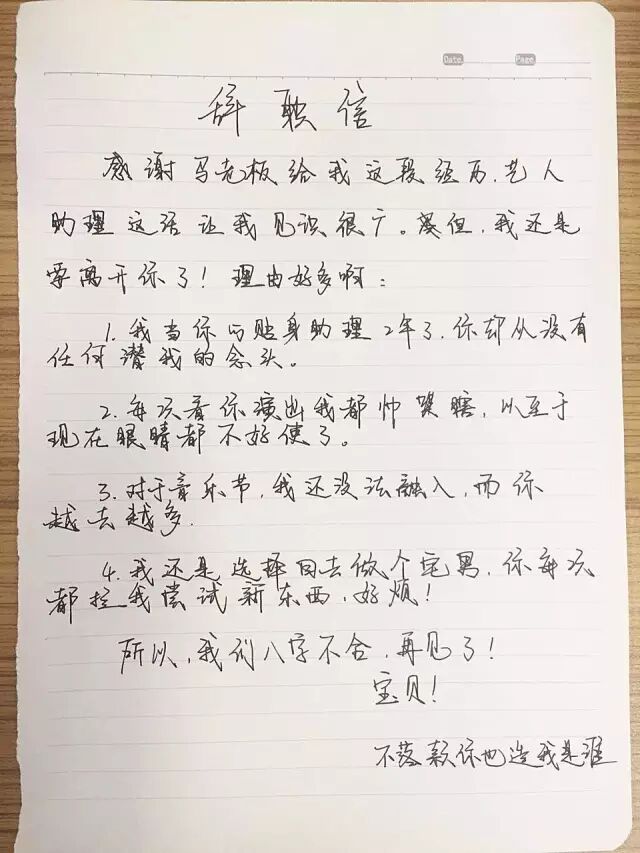 Date
Page
辞职信
感谢马老板给我这段经历,艺人
助理这活让我见识很广。但,我还是
要离开你了!理由好多啊:
1.我当你的贴身助理2年了,你却从没有
任何潜我的念头。
2.每次看你演出我都帅哭瞎,以至于
现在眼睛都不好使了。
3.对于音乐节,我还没法融入,而你
越去越多.
4.我还是选择回去做个宅男,你每次
都拉我尝试新东西,好烦!
所以,我们八字不合,再见了!
宝贝!
不落款你也造我是谁